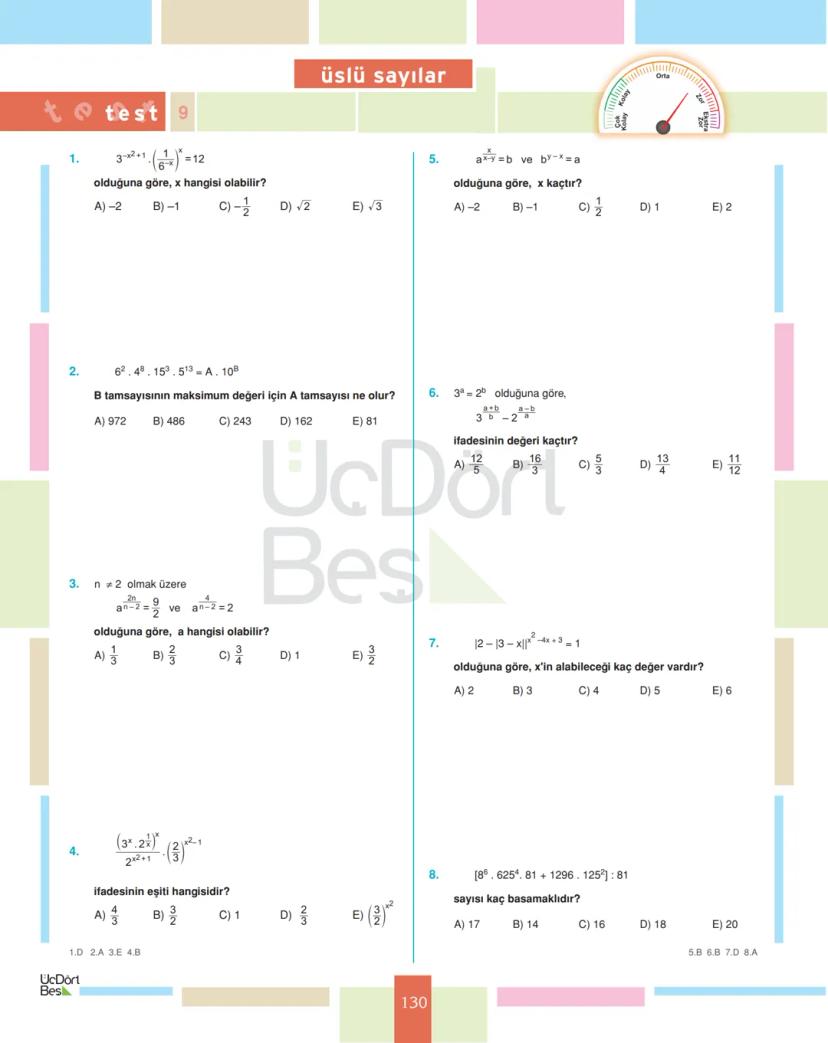 üslü sayılar
test 9
Çok Kolay
Kolay
Orta
Zor
Ekstra Zor
1. 3^{-x^2+1} . (1/6^{-x})^x = 12
olduğuna göre, x hangisi olabilir?
A) –2 B) –1 C) –1/2 D) √2 E) √3
2. 6² . 4⁸ . 15³ . 5¹³ = A . 10ᴮ
B tamsayısının maksimum değeri için A tamsayısı ne olur?
A) 972 B) 486 C) 243 D) 162 E) 81
3. n ≠ 2 olmak üzere
a^{2n/(n–2)} = 9/2 ve a^{4/(n–2)} = 2
olduğuna göre, a hangisi olabilir?
A) 1/3 B) 2/3 C) 3/4 D) 1 E) 3/2
4. (3^x . 2^{1/x})^x / 2^{x^2+1} . (2/3)^{x^2–1}
ifadesinin eşiti hangisidir?
A) 4/3 B) 3/2 C) 1 D) 2/3 E) (3/2)^{x^2}
1.D 2.A 3.E 4.B
5. a^{x/(x–y)} = b ve b^{y–x} = a
olduğuna göre, x kaçtır?
A) –2 B) –1 C) 1/2 D) 1 E) 2
6. 3^a = 2^b olduğuna göre,
3^{(a+b)/b} – 2^{(a–b)/a}
ifadesinin değeri kaçtır?
A) 12/5 B) 16/3 C) 5/3 D) 13/4 E) 11/12
7. |2 – |3 – x||^{x^2–4x+3} = 1
olduğuna göre, x'in alabileceği kaç değer vardır?
A) 2 B) 3 C) 4 D) 5 E) 6
8. [8⁶ . 625⁴. 81 + 1296 . 125²] : 81
sayısı kaç basamaklıdır?
A) 17 B) 14 C) 16 D) 18 E) 20
5.B 6.B 7.D 8.A
ÜçDört
Beş
ÜçDört
Beş
130